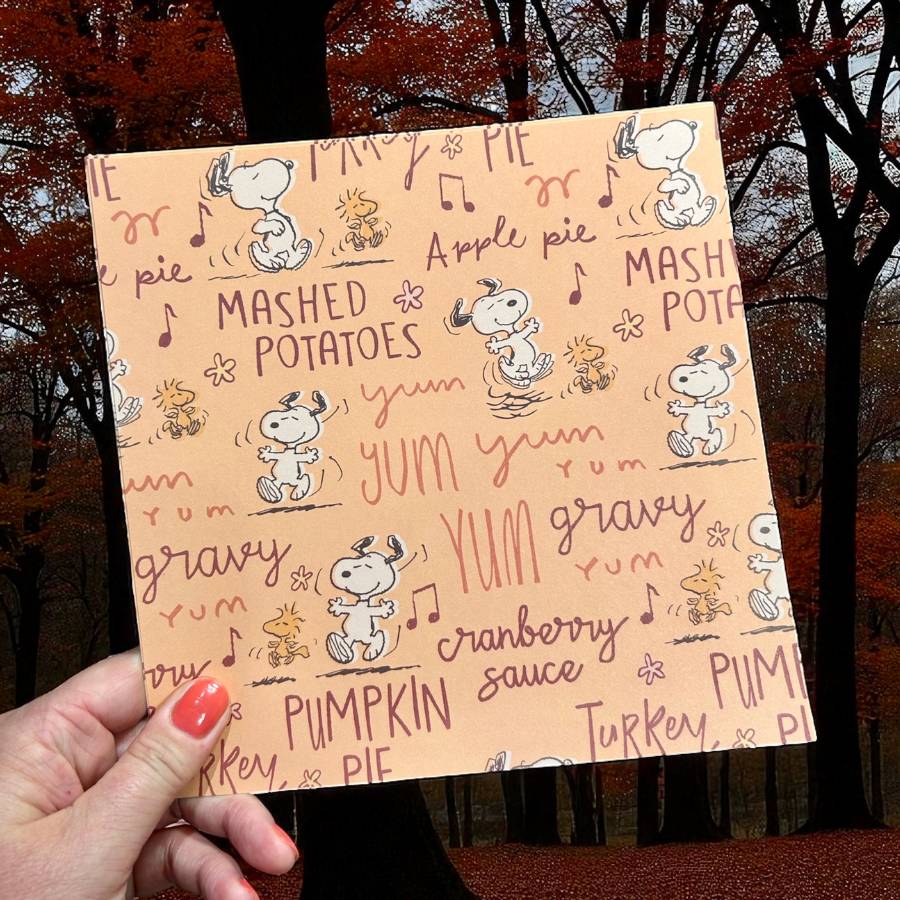 IE
Turkey PIE
Apple pie
e pie
MASHED
POTATOES
MASH
POTA
yum
YUM yum
Yum
um
Yum
YUM gravy
Yum
gravy
Yum
cranberry
sauce
rry
PUMPKIN
PIE
Turkey,
rkey,
PUMP
PI